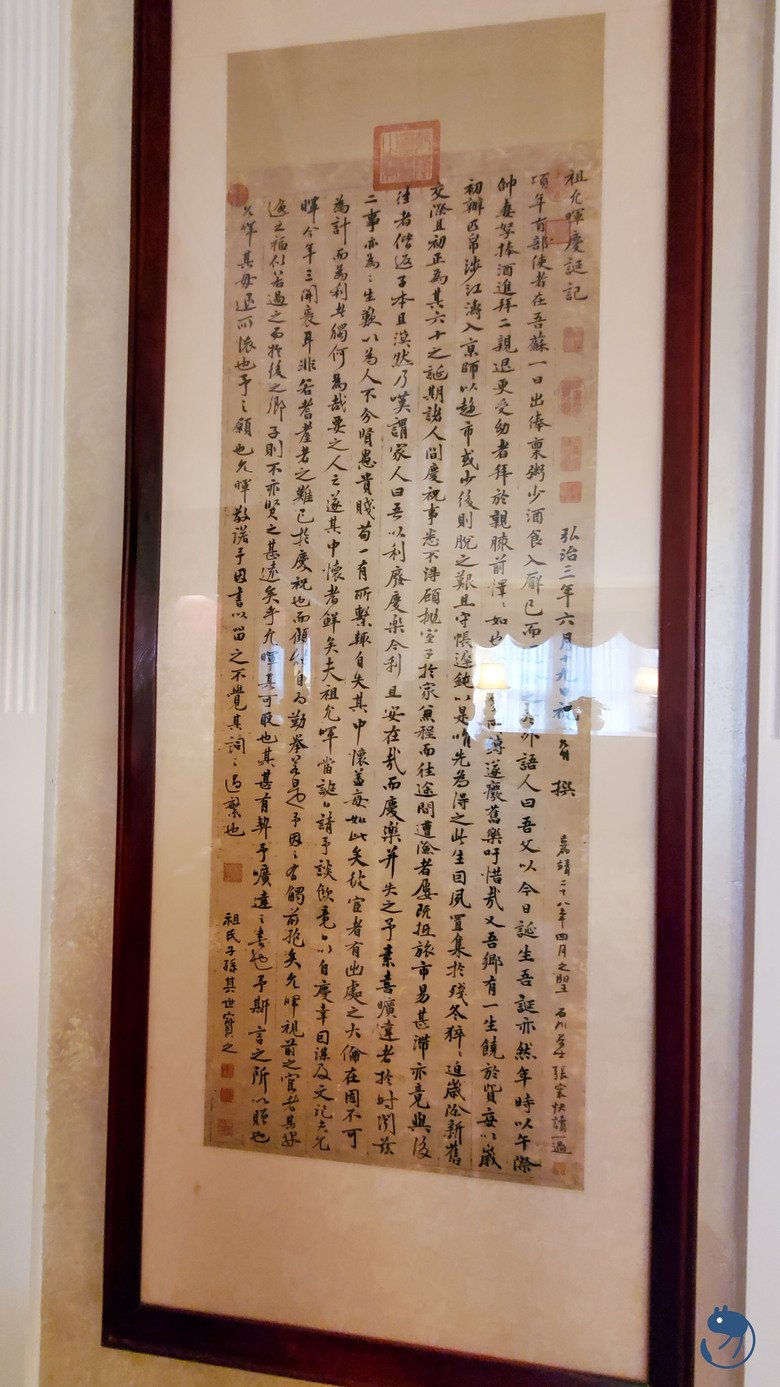 祖允暉慶誕記 弘治三年六月十九日祝允明 撰 嘉靖二十八年四月之 石川 張 快讀一過
頃年有部使者在吾蘇一日出俸稟粥少酒食入廨已而 外語人曰吾父以今日誕生吾誕亦然年時以午際
帥妻孥捧酒進拜二親退更受幼者拜於親膝前懌〻如也 遂癈舊樂吁惜哉又吾鄉有一生饒於貲每以歲
初辦匹帛涉江濤入京師以趨市或少後則脫之艱且守帳遲鈍以是唯先為得之此生固夙置集於殘冬猝〻迫歲除新舊
交際且初正為其六十之誕期諸人間慶祝事悉不淂顧拋室子於家兼程而往途間遭澮者屢既抵旅市易甚滯亦竟與後
往者偕返子本且漠然乃嘆謂家人曰吾以利廢慶樂今利且安在哉而慶樂并失之予素喜曠達者於时閱茲
二事亦為〻生歎以為人不分賢愚貴賤苟一有所繫輒自失其中懷蓋每如此矣彼宦者有出處之大倫在固不可
為計而為利者獨何為哉要之人之遂其中懷者鮮矣夫祖允暉當誕日請予談飲竟日以自慶幸因謀及文記之允
暉今年三開袠耳非若耆耋者之難已於慶祝也而傾倒自為勤拳若是予因之有觸前抱矣允暉視前之宦者其
逸之福似若過之而於後之鄉子則不亦賢之甚遠矣乎允暉其可取也其甚有契予曠達之素也予斯言之所以贈也
允暉其毋退而悵也予之願也允暉敬諾予因書以留之不覺其詞之過繁也 祖氏子孫其世寶之